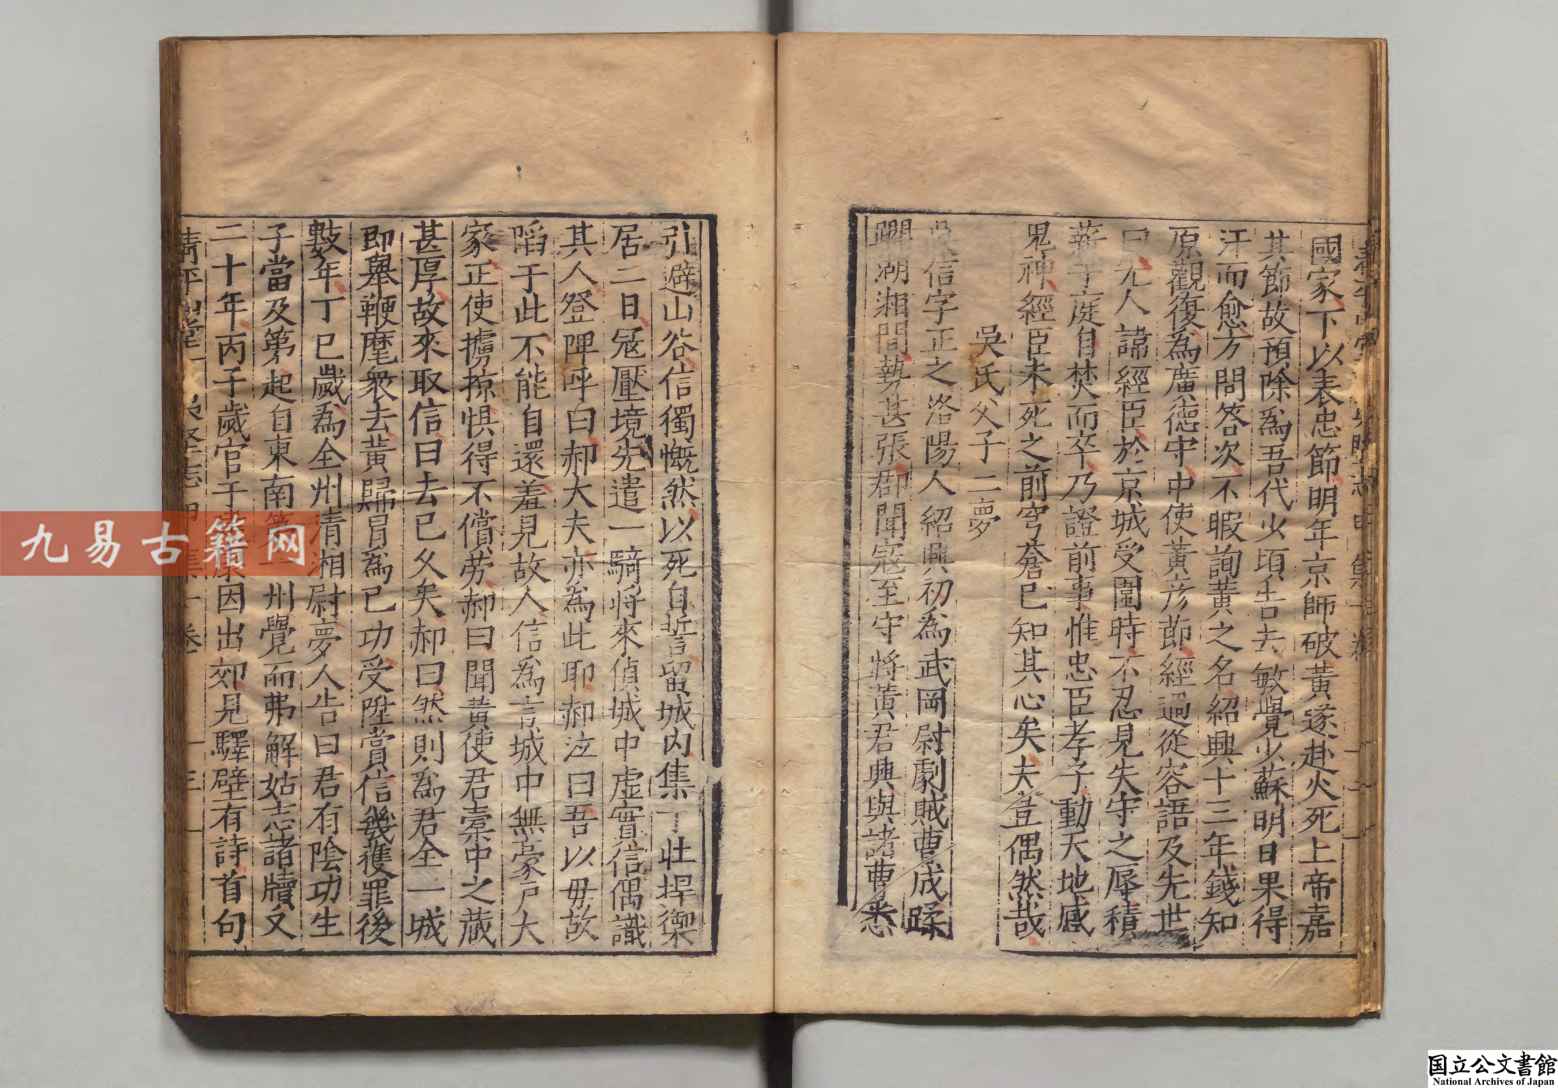 國家下以表忠節明年京師破黃遂赴火死上帝嘉
其節故預除爲吾代少頃告去敏覺少蘇明日果得
汗而愈方問答次不暇詢黃之名紹興十三年錢知
原觀復為廣德守中使黃彦節經過從容語及先世
曰先人諱經臣於京城受圍時不忍見失守之辱積
薪于庭自焚而卒乃證前事惟忠臣孝子動天地感
鬼神經臣未死之前穹蒼已知其心矣夫豈偶然哉
吳氏父子二夢
信字正之洛陽人紹興初為武岡尉劇賊曹成蹂
躙湖湘間勢甚張郡聞寇至守將黃君興與諸曹悉
引避山谷信獨慨然以死自誓留城内集丁壯捍禦
居二日冦壓境先遣一騎將來偵城中虛實信偶識
其人登陴呼曰郝大夫亦為此耶郝泣曰吾以毋故
䧟于此不能自還羞見故人信為言城中無豪戸大
家正使擄掠惧得不償劳郝曰聞黄使君槖中之蔵
甚厚故來取信曰去已久矣郝曰然則爲君全一城
即舉鞭麾衆去黃歸冒爲已功受陞賞信幾獲罪後
數年丁巳歲爲全州清湘尉夢人告曰君有陰功生
子當及第起自東南 州覺而弗解姑志諸牘又
二十年丙子歲官于 因出郊見驛壁有詩首句
清平山堂 夷堅志 集 卷 十三
九易古籍网
国立公文書館
National Archives of Japan